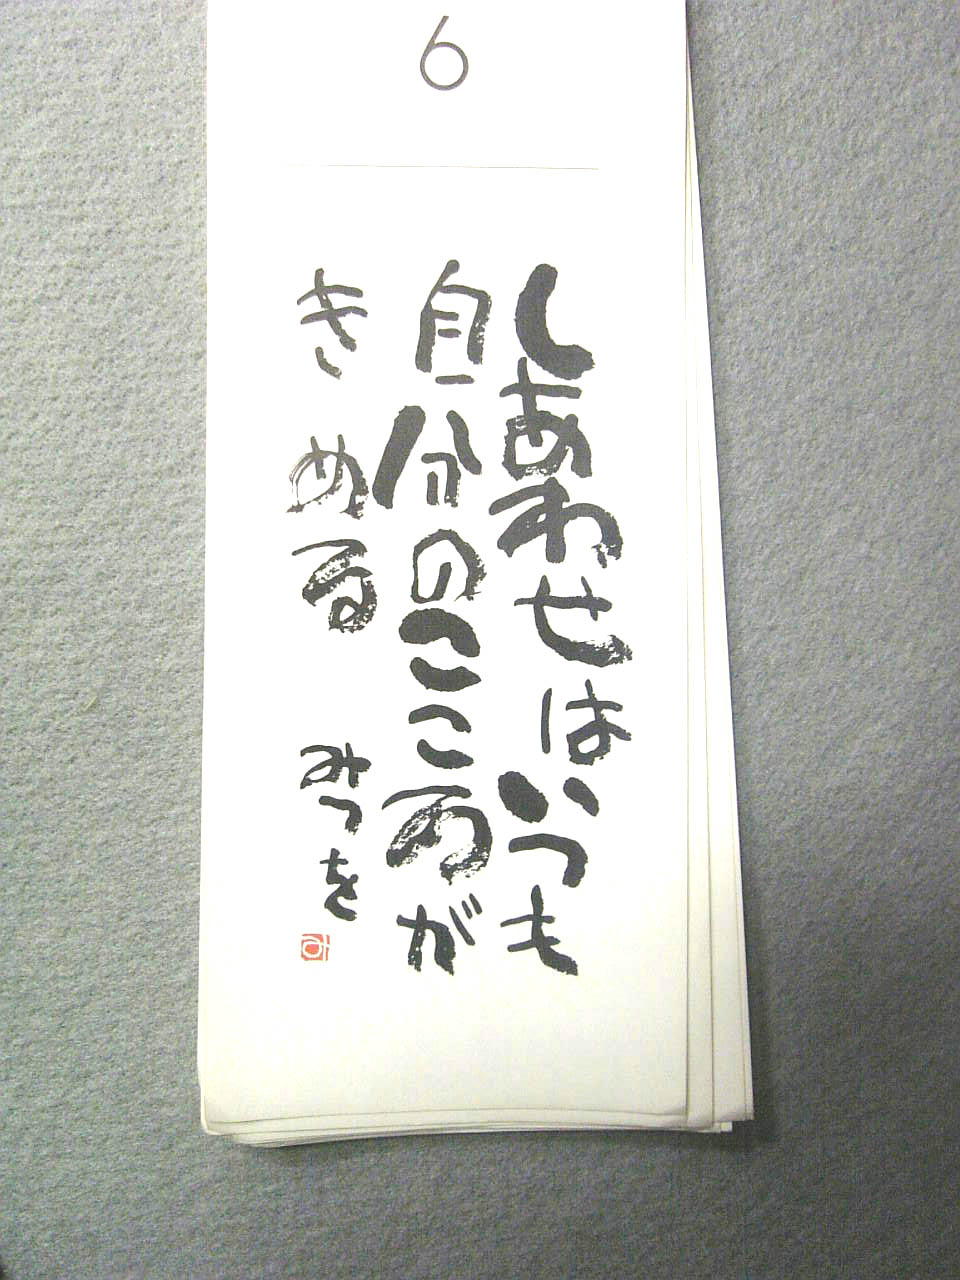 6
しあわせはいつも
自分のこころが
きめる
みつを
み